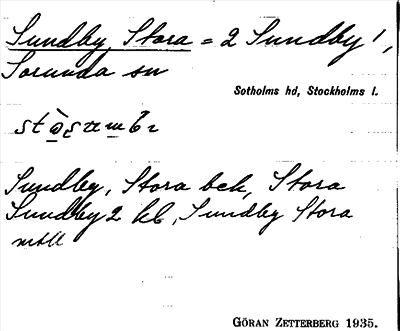 Sundby, Stora = 2 Sundby 1,
Sorunda sn
Sotholms hd, Stockholms l.
Sundby, Stora bek, Stora
Sundby 2 kb, Sundby Stora
mtll
GÖRAN ZETTERBERG 1935.